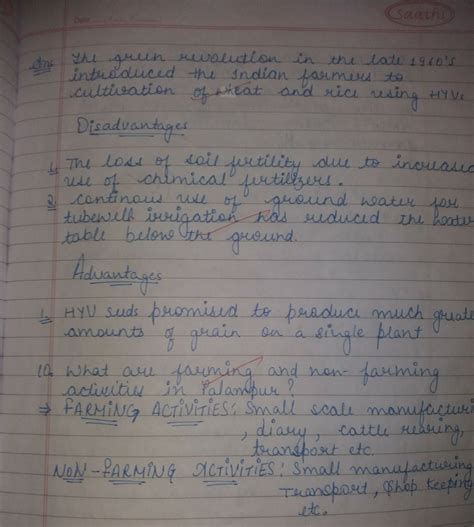 Saathi
Date
Ans The green revolution in the late 1960's
introduced the Indian farmers to
cultivation of wheat and rice using HYVs
Disadvantages
1. The loss of soil fertility due to increased
use of chemical fertilizers.
2. continous use of ground water for
tubewell irrigation has reduced the water
table below the ground.
Advantages
1. HYV seds promised to produce much greate
amounts of grain on a single plant
10. What are farming and non-farming
activities in Palampur?
→ FARMING ACTIVITIES: Small scale manufacturi
, diary, cattle rearing,
transport etc.
NON-FARMING ACTIVITIES: Small manufacturing
Transport, Shop keeping
etc.